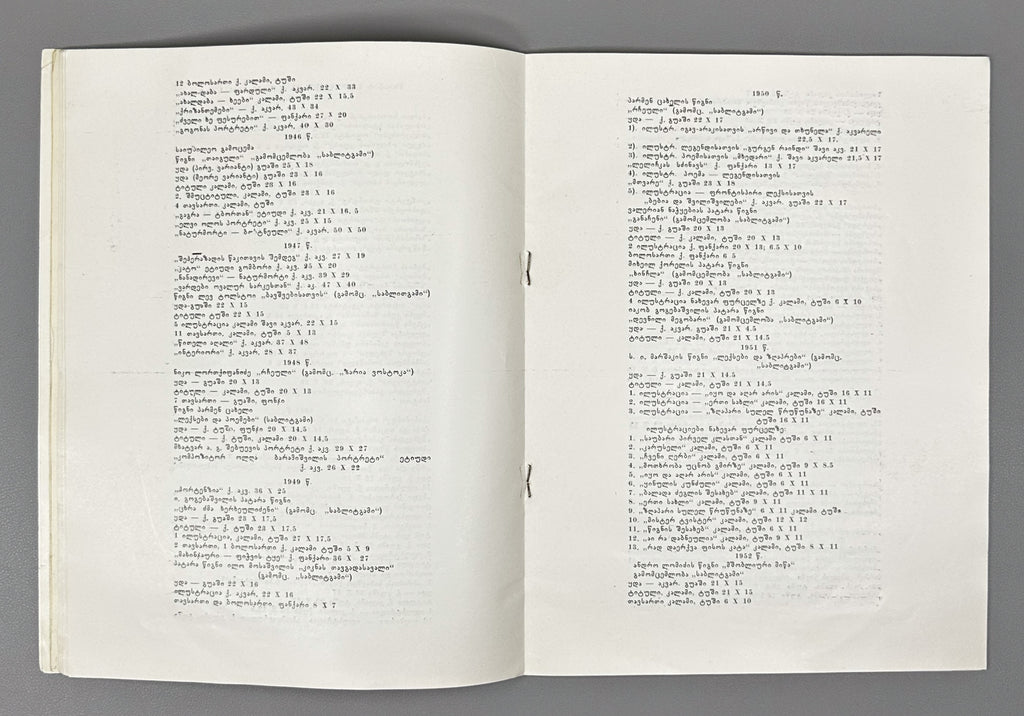 12 ბოლოსართი ქ. კალამი, ტუში
„ახალ-დაბა — ფარდული“ ქ. აკვარ. 22 X 33
„ახალდაბა — ხეები“ კალამი, ტუში 22 X 15,5
„ქრიზანთემები“ — ქ. აკვარ, 43 X 34
„ძველი ხე ფესურებით“ — ფანქარი 27 X 20
„გოგონას პორტრეტი“ ქ. აკვარ, 40 X 30
1946 წ.
საიუბილეო გამოცემა
წიგნი „თაიგული“ „გამომცემლობა „საბლიტგამი“)
ყდა (პირვ. ვარიანტი) გუაში 25 X 18
ყდა (მეორე ვარიანტი) გუაში 23 X 16
ტიტული კალამი, ტუში 23 X 16
2. შმუცტიტული, კალამი, ტუში 23 X 16
4 თავსართი. კალამი, ტუში
„გაგრა — ტბორთან“ ეტიუდი ქ. აკვ. 21 X 16, 5
„ელვი ოლოს პორტრეტი“ ქ. აკვ. 25 X 15
„ნატურმორტი — ბოსტნეული“ ქ. აკვარ, 50 X 50
1947 წ.
„შეჰერაზადის წაკითვის შემდეგ“ ქ. აკვ. 27 X 19
„კატო“ ეტიუდი გომბორი ქ. აკვ. 25 X 20
„ნანადირევი“ — ნატურმორტი ქ. აკვ. 39 X 29
„ვარდები ოვალურ სარკესთან“ ქ. აკ. 47 X 40
წიგნი ლევ ტოლსტოი „ბავშვებისათვის“ (გამომც. „საბლიტგამი“)
ყდა-გუაში 22 X 15
ტიტული ტუში 22 X 15
5 ილუსტრაცია კალამი შავი აკვარ. 22 X 15
11 თავსართი, კალამი, ტუში 5 X 13
„წითელი აღალი“ ქ. აკვარ. 37 X 48
„ინტერიორი“ ქ. აკვარ. 28 X 37
1948 წ.
ნიკო-ლორთქიფანიძე „რჩეული“ (გამომც. „ზარია ვოსტოკა“)
ყდა — გუაში 20 X 13
ტიტული — კალამი, ტუში 20 X 13
7 თავსართი — გუაში, ფუნჯი
წიგნი პარმენ ცახელი
„ლექსები და პოემები“ (საბლიტგამი)
ყდა — ქ. ტუში, ფუნჯი 20 X 14,5
ტიტული — ქ. ტუში, კალამი 20 X 14,5
მხატვარ ა. გ. შებუევის პორტრეტი ქ. აკვ. 29 X 27
„კომპოზიტორ ოლღა ბარამიშვილის პორტრეტი“ ეტიუდი
ქ. აკვ. 26 X 22
1949 წ.
„ჰორტენზია“ ქ. აკვ. 36 X 25
ი. გოგებაშვილის პატარა წიგნი
„ცხრა ძმა ხერხეულიძენი“ (გამომც. „საბლიტგამი“)
ყდა — გუაში 23 X 17,5
ტიტული — ქ. ტუში 23 X 17,5
1 ილუსტრაცია, კალამი, ტუში 27 X 17,5
2 თავსართი, 1 ბოლოსართი ქ. კალამი ტუში 5 X 9
„მახინჯაური — ფიჭვის ტყე“ ქ. ფანქარი 36 X 27
პატარა წიგნი ილო მოსაშვილის „კიკნას თავგადასავალი“
(გამომც. „საბლიტგამი“)
ყდა — გუაში 22 X 16
ილუსტრაცია ქ. აკვარ. 22 X 16
თავსართი და ბოლოსართი, ფანქარი 8 X 7
1950 წ.
პარმენ ცახელის წიგნი
„რჩეული“ (გამომც. „საბლიტგამი“)
ყდა — ქ. გუაში 22 X 17
1). ილუსტრ. იგავ-არაკისათვის „არწივი და თხუნელა“ ქ. აკვარელი
22,5 X 17.
2). ილუსტრ. ლეგენდისათვის „გურგენ რაინდი“ შავი აკვ. 21 X 17
3). ილუსტრ. პოემისათვის „მხედარი“ ქ. შავი აკვარელი 21,5 X 17
„ლელინკას სძინავს“ ქ. ფანქარი 13 X 17
4). ილუსტრ. პოემა — ლეგენდისათვის
„მთვარე“ ქ. გუაში 23 X 18
5). ილუსტრაცია — ფრონტისპირი ლექსისათვის
„ბებია და შვილიშვილები“ ქ. აკვარ. გუაში 22 X 17
ვალერიან ნაჭყებიას პატარა წიგნი
„განაჩენი“ (გამომცემლობა „საბლიტგამი“)
ყდა — ქ. გუაში 20 X 13
ტიტული — ქ. კალამი, ტუში 20 X 13
2 ილუსტრაცია ქ. ფანქარი 20 X 13; 6.5 X 10
ბოლოსართი ქ. ფანქარი 6 5
მიხეილ ქორელის პატარა წიგნი
„ხინჩლა“ (გამომცემლობა „საბლიტგამი“)
ყდა — ქ. გუაში 20 X 13
ტიტული — ქ. კალამი, ტუში 20 X 13
4 ილუსტრაცია ნახევარ ფურცელზე ქ. კალამი, ტუში 6 X 10
იაკობ გოგებაშვილის პატარა წიგნი
„დევნილი მეგობარი“ (გამომცემლობა „საბლიტგამი“)
ყდა — ქ. აკვარ, გუაში 21 X 4.5
ტიტული — ქ. კალამი, ტუში 21 X 14.5
1951 წ.
ს. ი. მარშაკის წიგნი „ლექსები და ზღაპრები“ (გამომც.
„საბლიტგამი“)
ყდა — ქ. გუაში 21 X 14.5
ტიტული — კალამი, ტუში 21 X 14,5
1. ილუსტრაცია — „იყო და აღარ არის“ კალამი, ტუში 16 X 11
2. ილუსტრაცია — „ერთი სახლი“ კალამი, ტუში 16 X 11
3. ილუსტრაცია — „ზღაპარი სულელ წრუწუნაზე“ კალამი, ტუში
ტუში 16 X 11
ილუსტრაციები ნახევარ ფურცელზე:
1. „საუბარი პირველ კლასთან“ კალამი ტუში 6 X 11
2. „კარუსელი“ კალამი, ტუში 6 X 11
3. „ჩვენი ღერბი“ კალამი, ტუში 6 X 11
4. „მოთხრობა უცნობ გმირზე“ კალამი, ტუში 9 X 8.5
5. „იყო და აღარ არის“ კალამი, ტუში 6 X 11
6. „ყინულის კუნძული“ კალამი, ტუში 6 X 11
7. „ბალადა ძეგლის შესახებ“ კალამი, ტუში 11 X 11
8. „ერთი სახლი“ კალამი, ტუში 9 X 11
9. „ზღაპარი სულელ წრუწუნაზე“ 6 X 11 კალამი ტუში
10. „მისტერ ტვისტერ“ კალამი, ტუში 12 X 12
11. „წიგნის შესახებ“ კალამი, ტუში 6 X 11
12. „აი რა დაბნეულია“ კალამი, ტუში 9 X 11
13. „რად დაერქვა ფისოს კატა“ კალამი, ტუში 8 X 11
1952 წ.
ანდრო ლომიძის წიგნი „მშობლიური მიწა“
გამომცემლობა „საბლიტგამი“
ყდა — აკვარ. გუაში 21 X 15
ტიტული, კალამი, ტუში 21 X 15
თავსართი კალამი, ტუში 6 X 10